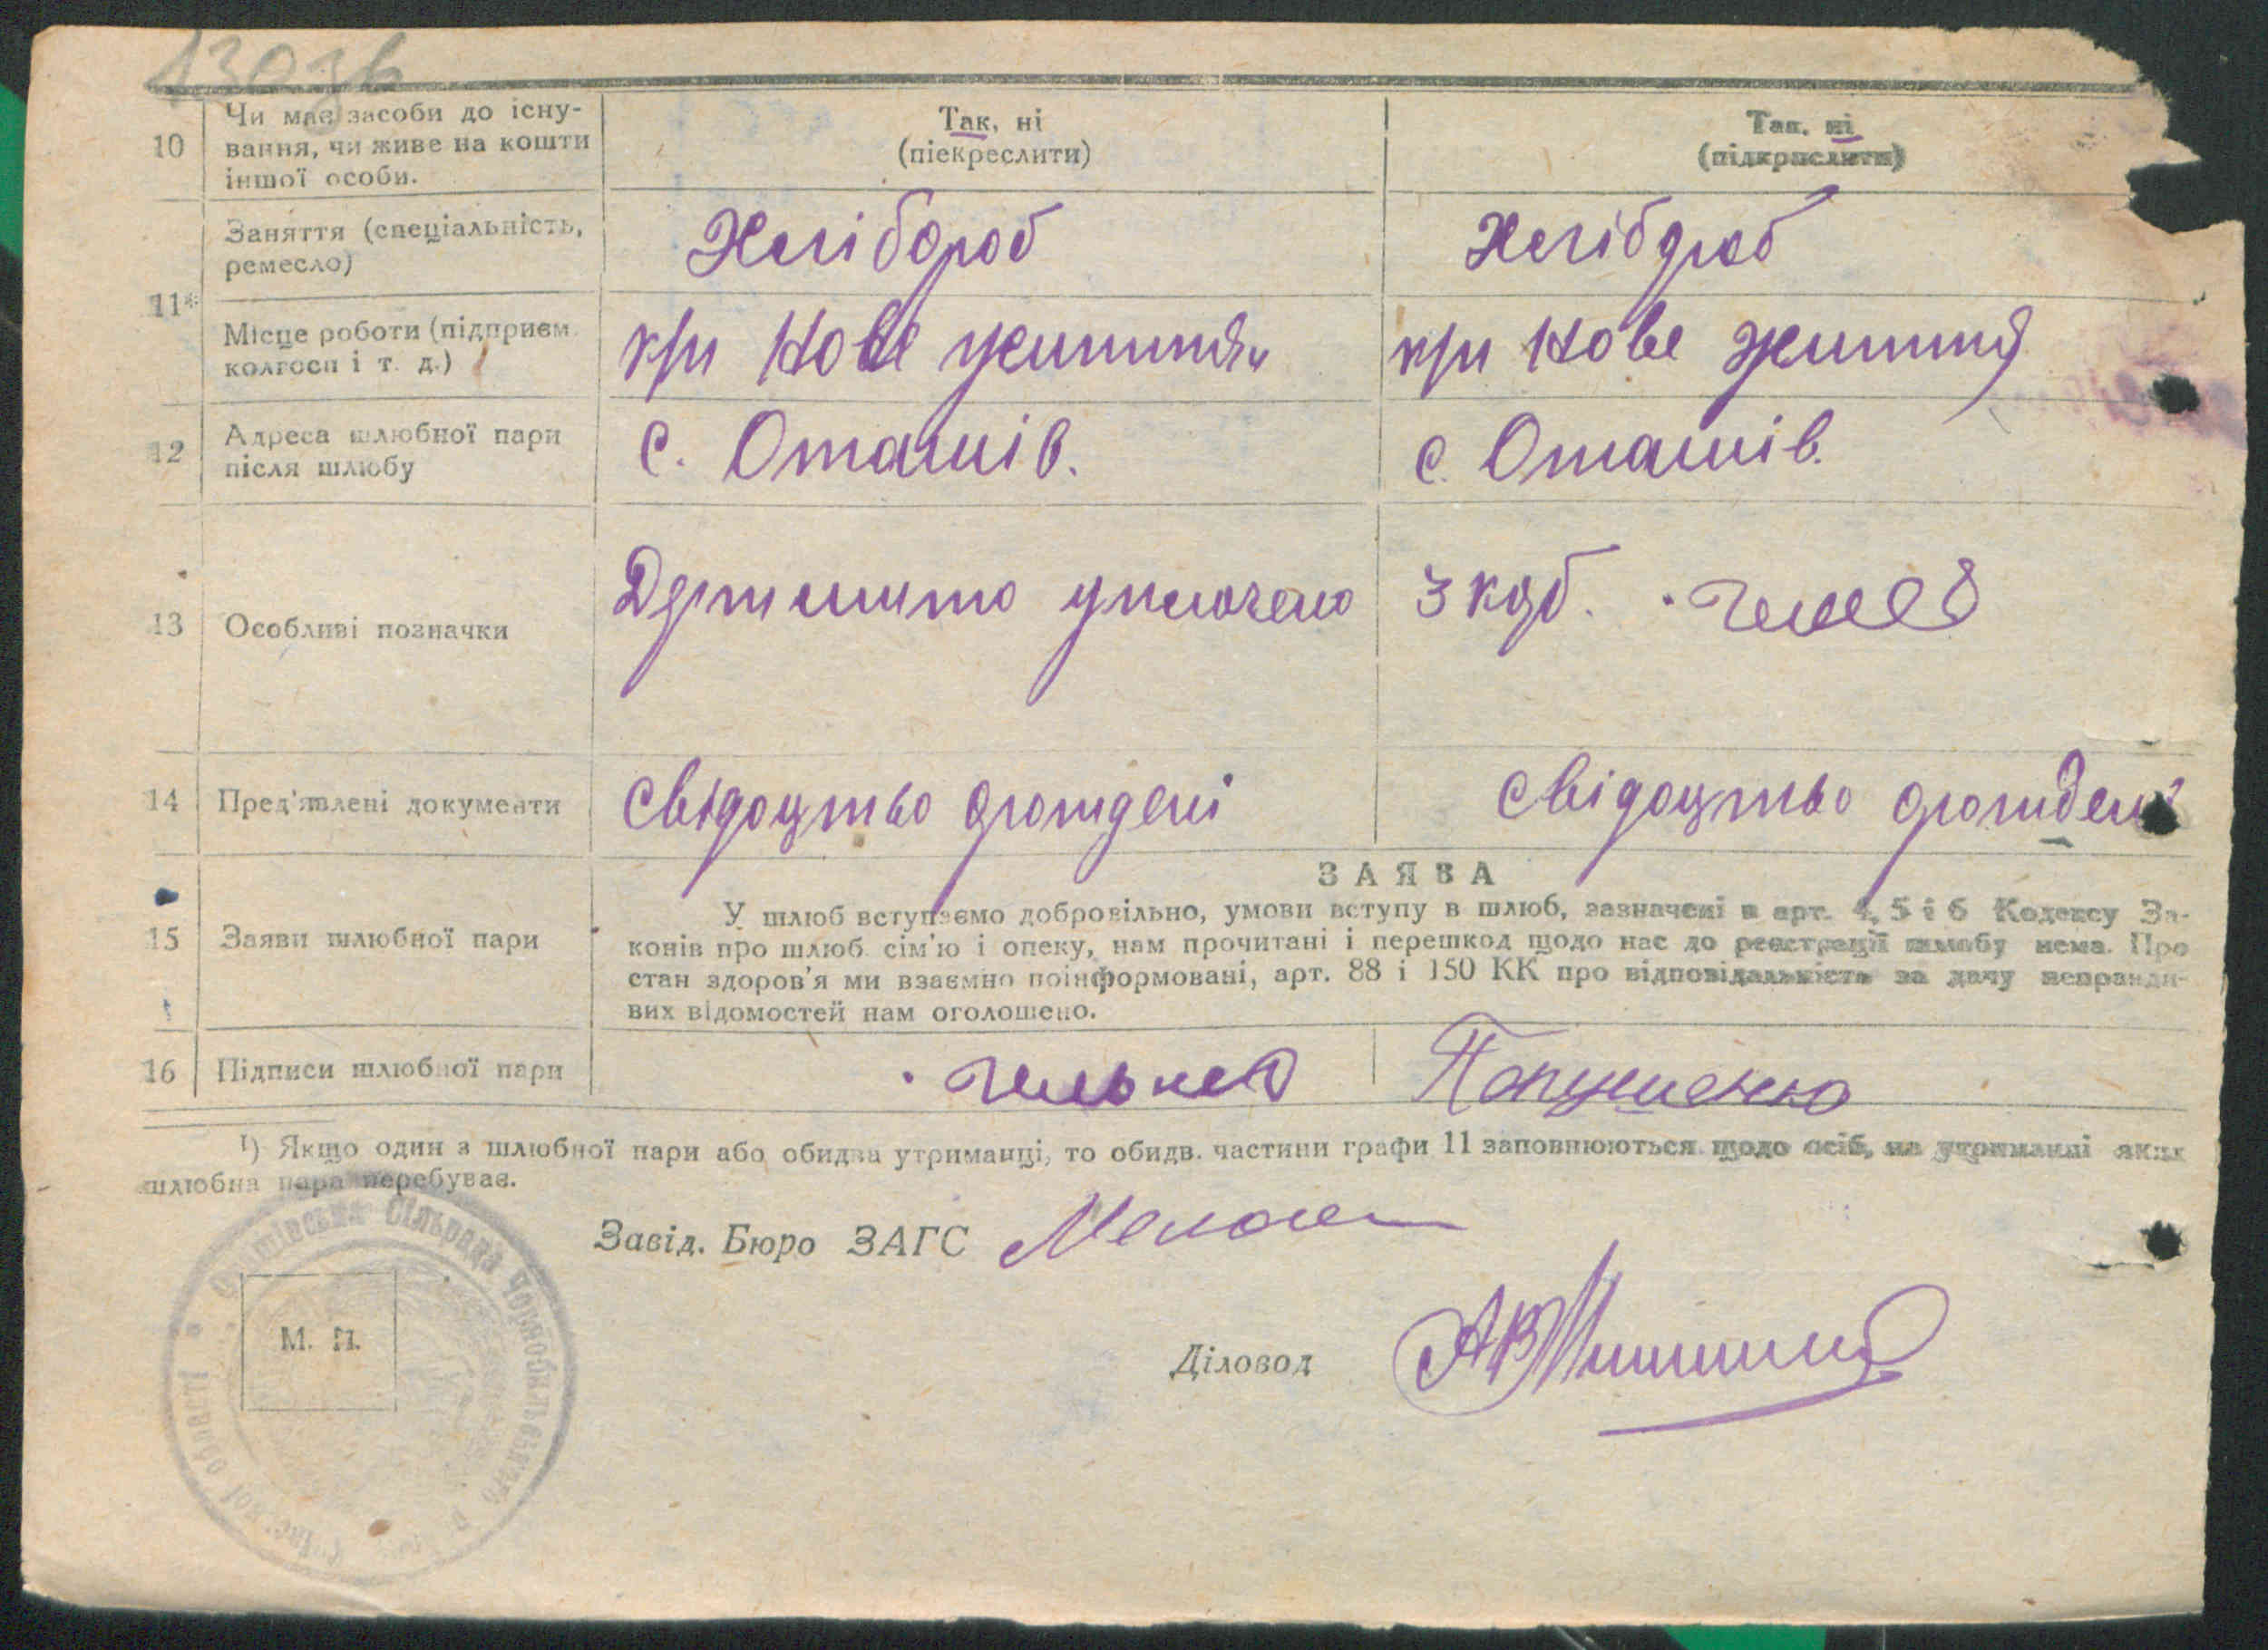 130зв
10 Чи має засоби до існу-
вання, чи живе на кошти
іншої особи.
Так, ні
(піекреслити)
Так, ні
(підкреслити)
11* Заняття (спеціальність,
ремесло)
Хлібороб
Хлібороб
Місце роботи (підприєм.
колгосп і т. д.)
к/г Нове життя"
к/г Нове життя
12 Адреса шлюбної пари
після шлюбу
с. Оташів.
с. Оташів.
13 Особливі позначки
уплочено
3 карб.
14 Пред'явлені документи
Свідоцтво рождені
Свідоцтво рождені
ЗАЯВА
15 Заяви шлюбної пари
У шлюб вступаємо добровільно, умови вступу в шлюб, зазначені в арт. 4, 5 і 6 Кодексу За-
конів про шлюб. сім'ю і опеку, нам прочитані і перешкод щодо нас до реєстрації шлюбу нема. Про
стан здоров'я ми взаємно поінформовані, арт. 88 і 150 КК про відповідальність за дачу неправди-
вих відомостей нам оголошено.
16 Підписи шлюбної пари
1) Якщо один з шлюбної пари або обидва утриманці, то обидв. частини графи 11 заповнюються щодо осіб, на утриманні яких
шлюбна пара перебуває.
Завід. Бюро ЗАГС
М. П.
Діловод
Сільрада Чорнобильського
області